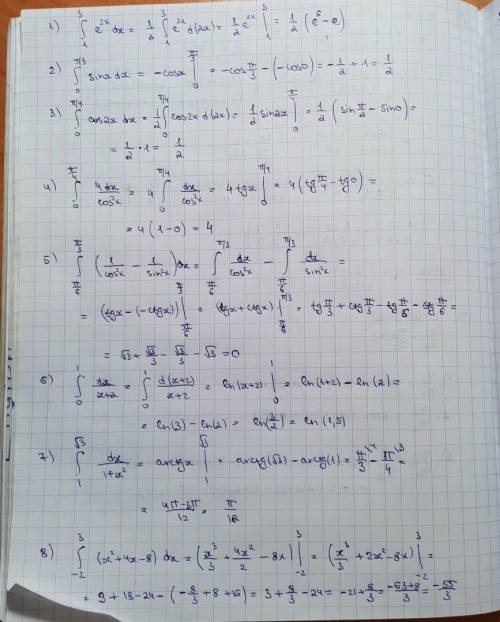 1) ∫₁³ e²ˣ dx = 1/2 ∫₁³ e²ˣ d(2x) = 1/2 e²ˣ |₁³ = 1/2 (e⁶ - e)
2) ∫₀^π/3 sinx dx = -cosx |₀^π/3 = -cos π/3 - (-cos0) = -1/2 + 1 = 1/2
3) ∫₀^π/4 cos2x dx = 1/2 ∫₀^π/4 cos2x d(2x) = 1/2 sin2x |₀^π/4 = 1/2 (sin π/2 - sin0) =
= 1/2 · 1 = 1/2
4) ∫₀^π/4 4dx/cos²x = 4 ∫₀^π/4 dx/cos²x = 4 tgx |₀^π/4 = 4 (tg π/4 - tg0) =
= 4 (1-0) = 4
5) ∫_π/6^π/3 (1/cos²x - 1/sin²x) dx = ∫_π/6^π/3 dx/cos²x - ∫_π/6^π/3 dx/sin²x =
= (tgx - (-ctgx)) |_π/6^π/3 = (tgx + ctgx) |_π/6^π/3 = tg π/3 + ctg π/3 - tg π/6 - ctg π/6 =
= √3 + √3/3 - √3/3 - √3 = 0
6) ∫₀¹ dx/x+2 = ∫₀¹ d(x+2)/x+2 = ln(x+2) |₀¹ = ln(1+2) - ln(2) =
= ln(3) - ln(2) = ln(3/2) = ln(1,5)
7) ∫₁^√3 dx/1+x² = arctgx |₁^√3 = arctg(√3) - arctg(1) = π/3 \4 - π/4 \3 =
= 4π-3π/12 = π/12
8) ∫₋₂³ (x²+4x-8) dx = (x³/3 + 4x²/2 - 8x) |₋₂³ = (x³/3 + 2x² - 8x) |₋₂³ =
= 9 + 18 - 24 - (-8/3 + 8 + 16) = 3 + 8/3 - 24 = -21 + 8/3 = -63+8/3 = -55/3